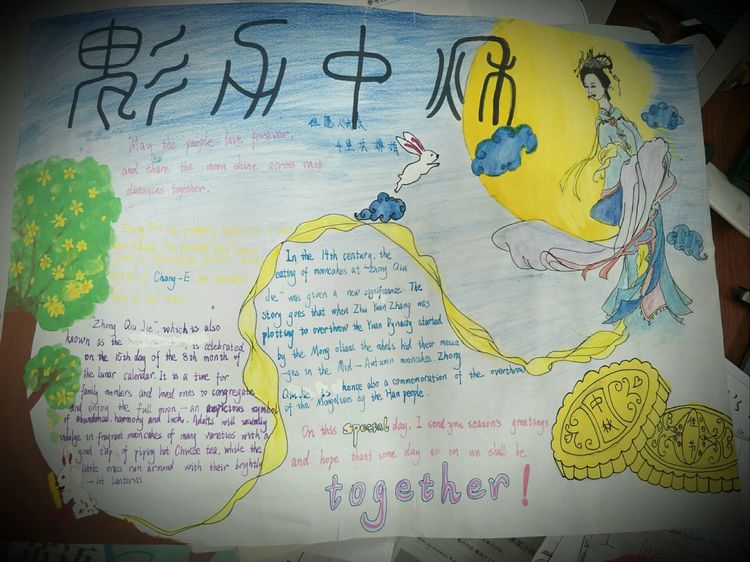 魅力中秋
但愿人长久
千里共婵娟
May the people live forever,
and share the moon shine across vast
distances together.
Zhong Qiu Jie probably began as a
Chang-E
In the 14th century, the
eating of mooncakes at Zhong Qiu
Jie" was given a new significance. The
story goes that when Zhu Yuan Zhang was
plotting to overthrow the Yuan Dynasty started
by the Mong olians, the rebels hid their messa
ges in the Mid-Autumn mooncakes. Zhong
Qiu Jie is hence also a commemoration of the overthrow
of the Mongolians by the Han people.
"Zhong Qiu Jie", which is also
known as the is celebrated
on the 15th day of the 8th month of
the lunar calendar. It is a time for
family members and loved ones to congregate
and enjoy the full moon — an auspicious symbol
of abundance, harmony and luck. Adults will usually
indulge in fragrant mooncakes of many varieties with a
good cup of piping hot Chinese tea, while the
little ones run around with their brightly
-lit lanterns
On this special day, I send you season's greetings
and hope thant some day so on we shall be
together!
中秋
佳节